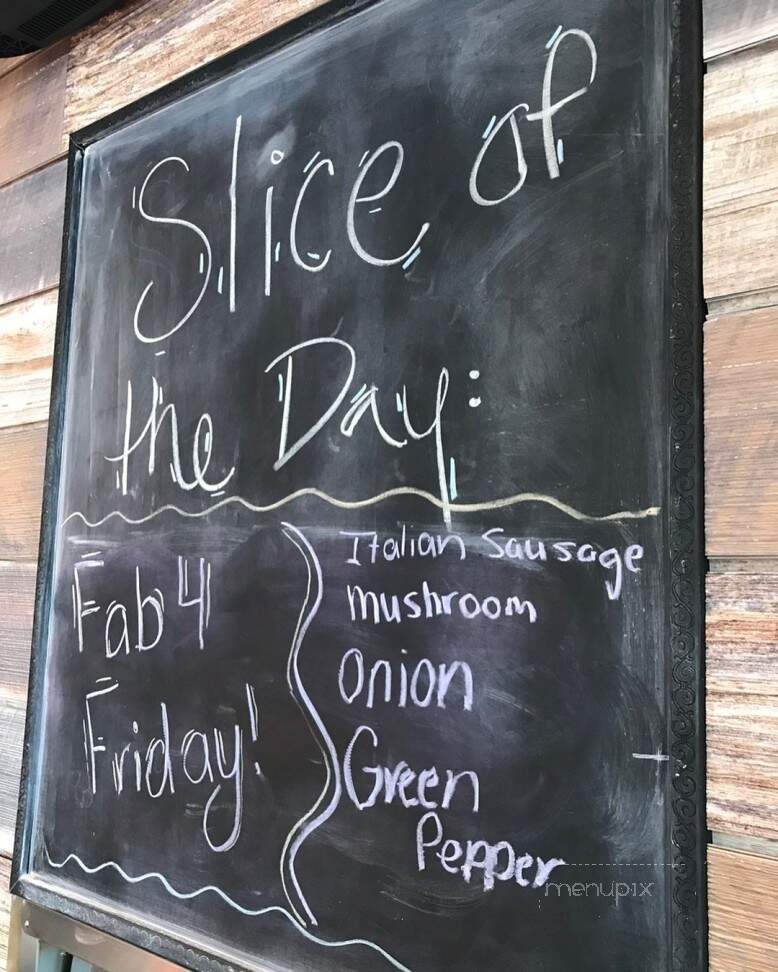 Slice of
the Day:
Fab 4
Friday!
Italian Sausage
mushroom
Onion
Green
Pepper
menupix